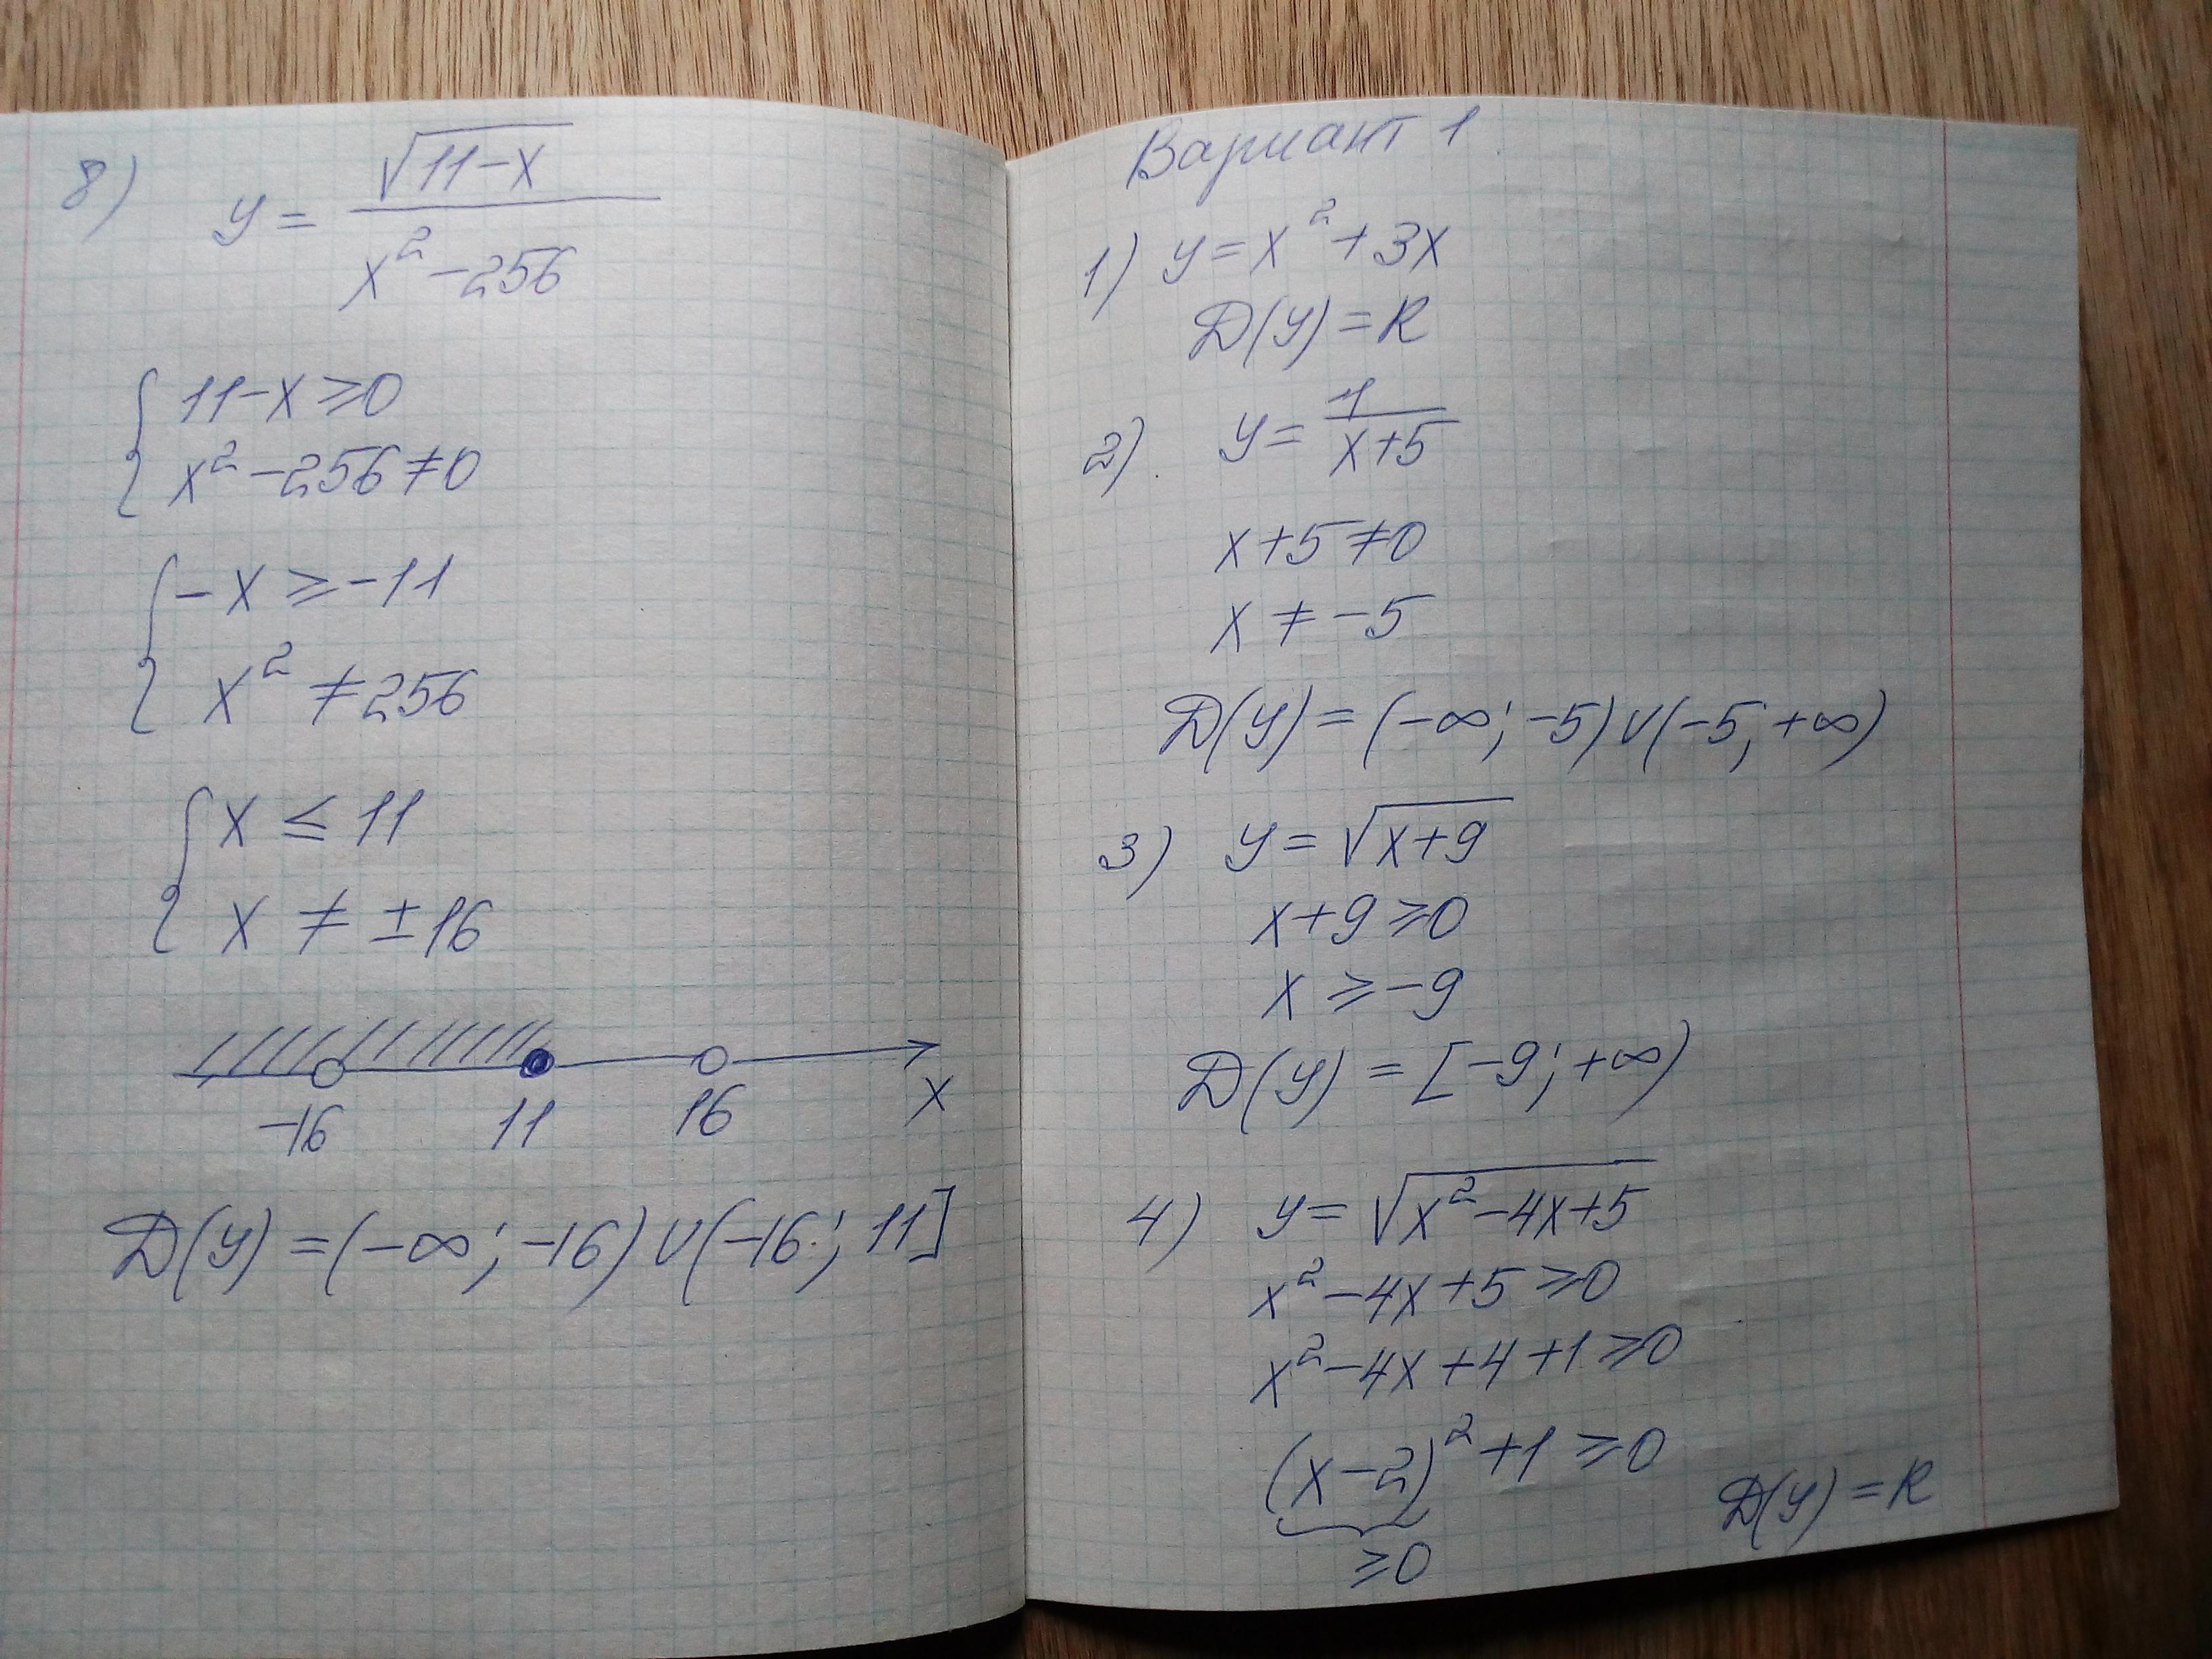 8) y = √(11-x) / (x² - 256)
{ 11 - x ≥ 0
x² - 256 ≠ 0
{ -x ≥ -11
x² ≠ 256
{ x ≤ 11
x ≠ ±16
-16 11 16 x
D(y) = (-∞; -16) ∪ (-16; 11]
Вариант 1.
1) y = x² + 3x
D(y) = R
2) y = 1 / (x+5)
x + 5 ≠ 0
x ≠ -5
D(y) = (-∞; -5) ∪ (-5; +∞)
3) y = √(x+9)
x + 9 ≥ 0
x ≥ -9
D(y) = [-9; +∞)
4) y = √(x² - 4x + 5)
x² - 4x + 5 ≥ 0
x² - 4x + 4 + 1 ≥ 0
(x - 2)² + 1 ≥ 0
≥ 0
D(y) = R